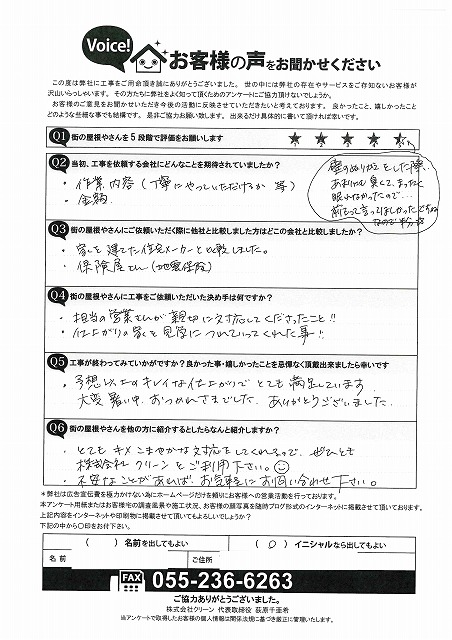 Voice! お客様の声をお聞かせください
この度は弊社に工事をご用命頂き誠にありがとうございました。世の中には弊社の存在やサービスをご存知ないお客様が
沢山いらっしゃいます。その方たちに弊社をよく知って頂くためのアンケートにご協力頂けないでしょうか。
お客様のご意見をお聞かせいただき今後の活動に反映させていただきたいと考えております。良かったこと、嬉しかったこと
どのような些細な事でも結構です。是非ご協力お願い致します。出来るだけ具体的に書いて頂ければ幸いです。
Q1 街の屋根やさんを5段階で評価をお願いします ★ ★ ★ ★ ★
Q2 当初、工事を依頼する会社にどんなことを期待されていましたか?
・作業内容(丁寧にやっていただけるか 等)
・金額
壁のぬりかえをした際、
あまりにも臭くて、まったく
眠れなかったので…
前もって言ってほしかった
Q3 街の屋根やさんにご依頼いただく際に他社と比較しました方はどこの会社と比較しましたか?
・家を建てた住宅メーカーと比較しました。
・保険屋さん(地震保険)
Q4 街の屋根やさんに工事をご依頼いただいた決め手は何ですか?
・担当の営業さんが親切に対応してくださったこと!!
・仕上がりの家を見学につれていってくれた事!!
Q5 工事が終わってみていかがですか?良かった事・嬉しかったことを忌憚なく頂戴出来ましたら幸いです
・予想以上のキレイな仕上がりでとても満足しています。
大変暑い中、おつかれさまでした。ありがとうございました…
Q6 街の屋根やさんを他の方に紹介するとしたらなんと紹介しますか?
・とてもキメこまやかな対応をしてくれるので、ぜひとも
株式会社クリーンをご利用下さい。
・不安なことがあれば、お気軽にお問い合わせ下さい。
*弊社は広告宣伝費を極力かけない為にホームページだけを頼りにお客様への営業活動を行っております。
本アンケート用紙またはお客様宅の調査風景や施工状況、お客様の顔写真を随時ブログ形式のインターネットに掲載させて頂いております。
上記内容をインターネットや印刷物に掲載させて頂いてもよろしいでしょうか?
下記の中から〇印をお付下さい。
( )名前を出してもよい (〇)イニシャルなら出してもよい
名前 ご住所
FAX 055-236-6263
ご協力ありがとうございました。
株式会社クリーン 代表取締役 荻原千亜希
当アンケートで取得したお客様の個人情報は関係法規に基づき厳正に管理いたします。